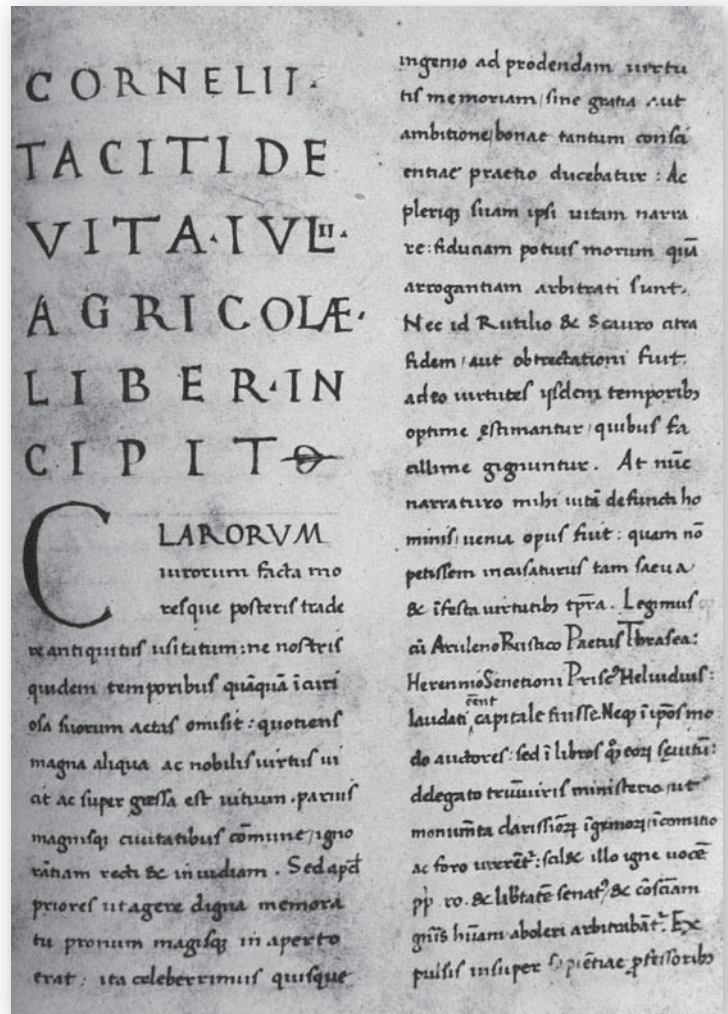 CORNELII·
TACITI DE
VITA·IVLII·
AGRICOLÆ·
LIBER·IN
CIPIT
CLARORVM
uirorum facta mo
resque posteris trade
re antiquitus usitatum: ne nostris
quidem temporibus quāquā īcuri
osa suorum aetas omisit: quotiens
magna aliqua ac nobilis uirtus ui
cit ac supergressa est uitium. paruis
magnisq; ciuitatibus cōmune, igno
rātiam recti & inuidiam. Sed apđ
priores ut agere digna memora
tu pronum magisq; in aperto
erat: ita celeberrimus quisque
ingenio ad prodendam uirtu
tis memoriam, sine gratia aut
ambitione, bonae tantum consci
entiae praetio ducebatur: Ac
pleriq; suam ipsi uitam narra
re: fiduciam potius morum quā
arrogantiam arbitrati sunt.
Nec id Rutilio & Scauro citra
fidem, aut obtrectationi fuit.
adeo uirtutes ysdem temporib;
optime ęstimantur, quibus fa
cillime gignuntur. At nūc
narraturo mihi uitā defuncti ho
minis, uenia opus fuit: quam nō
petissem incusaturus tam saeua
& īfesta uirtutib; tp̄ra. Legimus
cū Aruleno Rustico Paetus Thrasea:
Herennio Senetioni Prisc⁹ Heluidius:
laudati cēnt capitale fuisse. Neq; ī ip̄os mo
do auctores: sed ī libros q̊q; eorꝝ seuitū:
delegato triūuiris ministerio, ut
monumēta clarissioꝝ īgenioꝝ, ī comitio
ac foro urerēt᷑: scilꝫ illo igne uocē
pp̄ ro. & lib̄tatē senat⁹, & cōsciam
gn̄is hūam aboleri arbitrabāt᷑. Ex
pulsis insuper sapientiae ꝓfessorib;